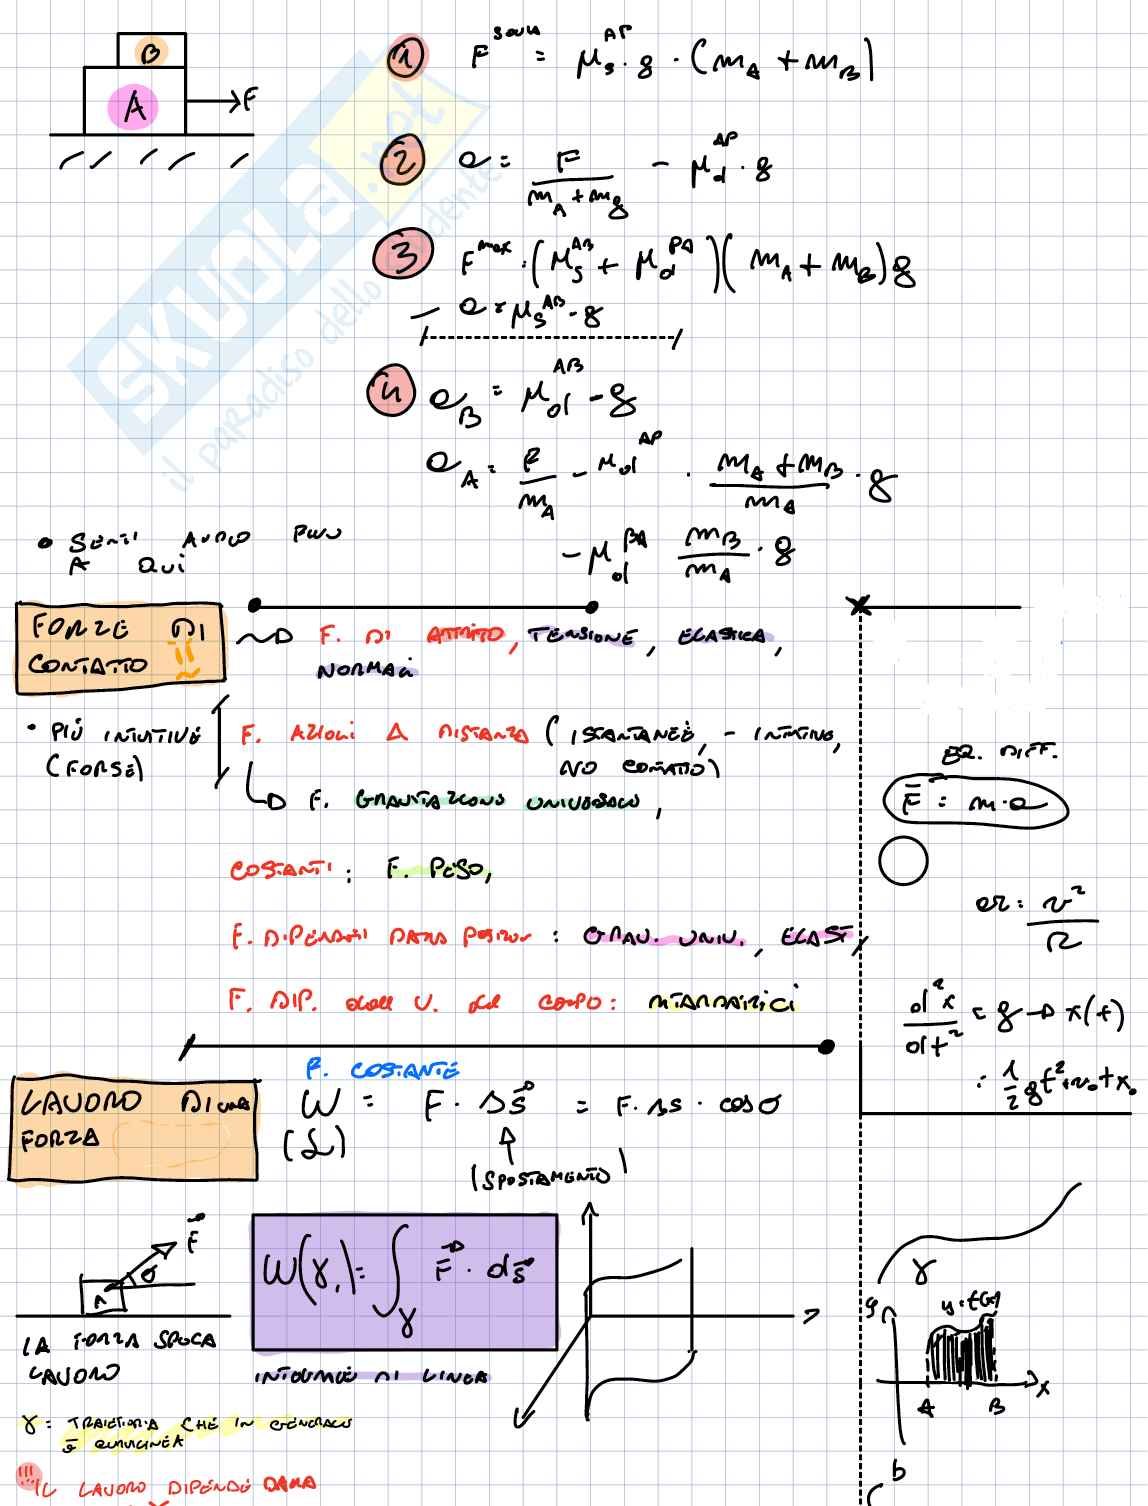 B
A
F
1 F^SOGLIA = μ_s^AP · g · (m_A + m_B)
2 a = F / (m_A + m_B) - μ_d^AP · g
3 F^max : (μ_s^AB + μ_d^PA)(m_A + m_B) g
- a = μ_s^AB · g
4 a_B = μ_d^AB - g
a_A = F / m_A - μ_d^AP · (m_A + m_B) / m_A · g
- μ_d^BA m_B / m_A · g
SKUOLA.net
il paradiso dello studente
A QUI
FORZE DI
CONTATTO !!
~> F. DI ATTRITO, TENSIONE, ELASTICA,
NORMALI
• PIÙ INTUITIVE
(FORSE)
F. AZIONI A DISTANZA (ISTANTANEE, - INTUITIVO,
NO CONTATTO)
↳ F. GRAVITAZIONE UNIVERSALE,
COSTANTI: F. PESO,
F. DIPENDENTI DALLA POSIZIONE: GRAV. UNIV., ELAST,
F. DIP. dalla V. del CORPO:
EQ. DIFF.
F = m · a
a_R = v² / R
d²x / dt² = g → x(t)
= 1/2 g t² + v₀ + x₀
LAVORO DI UNA
FORZA
F. COSTANTE
W = F · Δs = F · Δs · cos σ
(L)
(SPOSTAMENTO)
F
σ
A
LA FORZA SPOCA
LAVORO
W(γ₁) = ∫_γ F · ds
INTEGRALE DI LINEA
γ = TRAIETTORIA CHE IN GENERALE
È CURVILINEA
!!! IL LAVORO DIPENDE DALLA
γ
y
y = f(x)
A B x
b